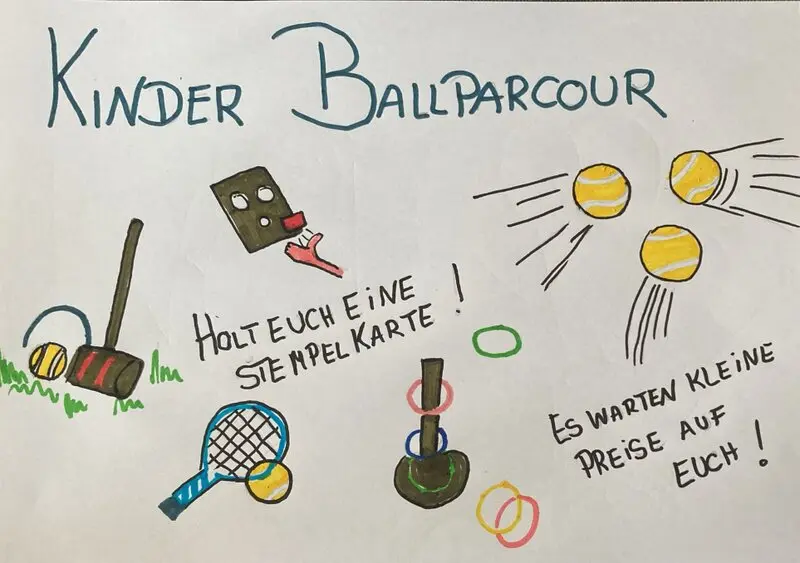 KINDER BALLPARCOUR
HOLT EUCH EINE
STEMPELKARTE!
ES WARTEN KLEINE
PREISE AUF
EUCH!